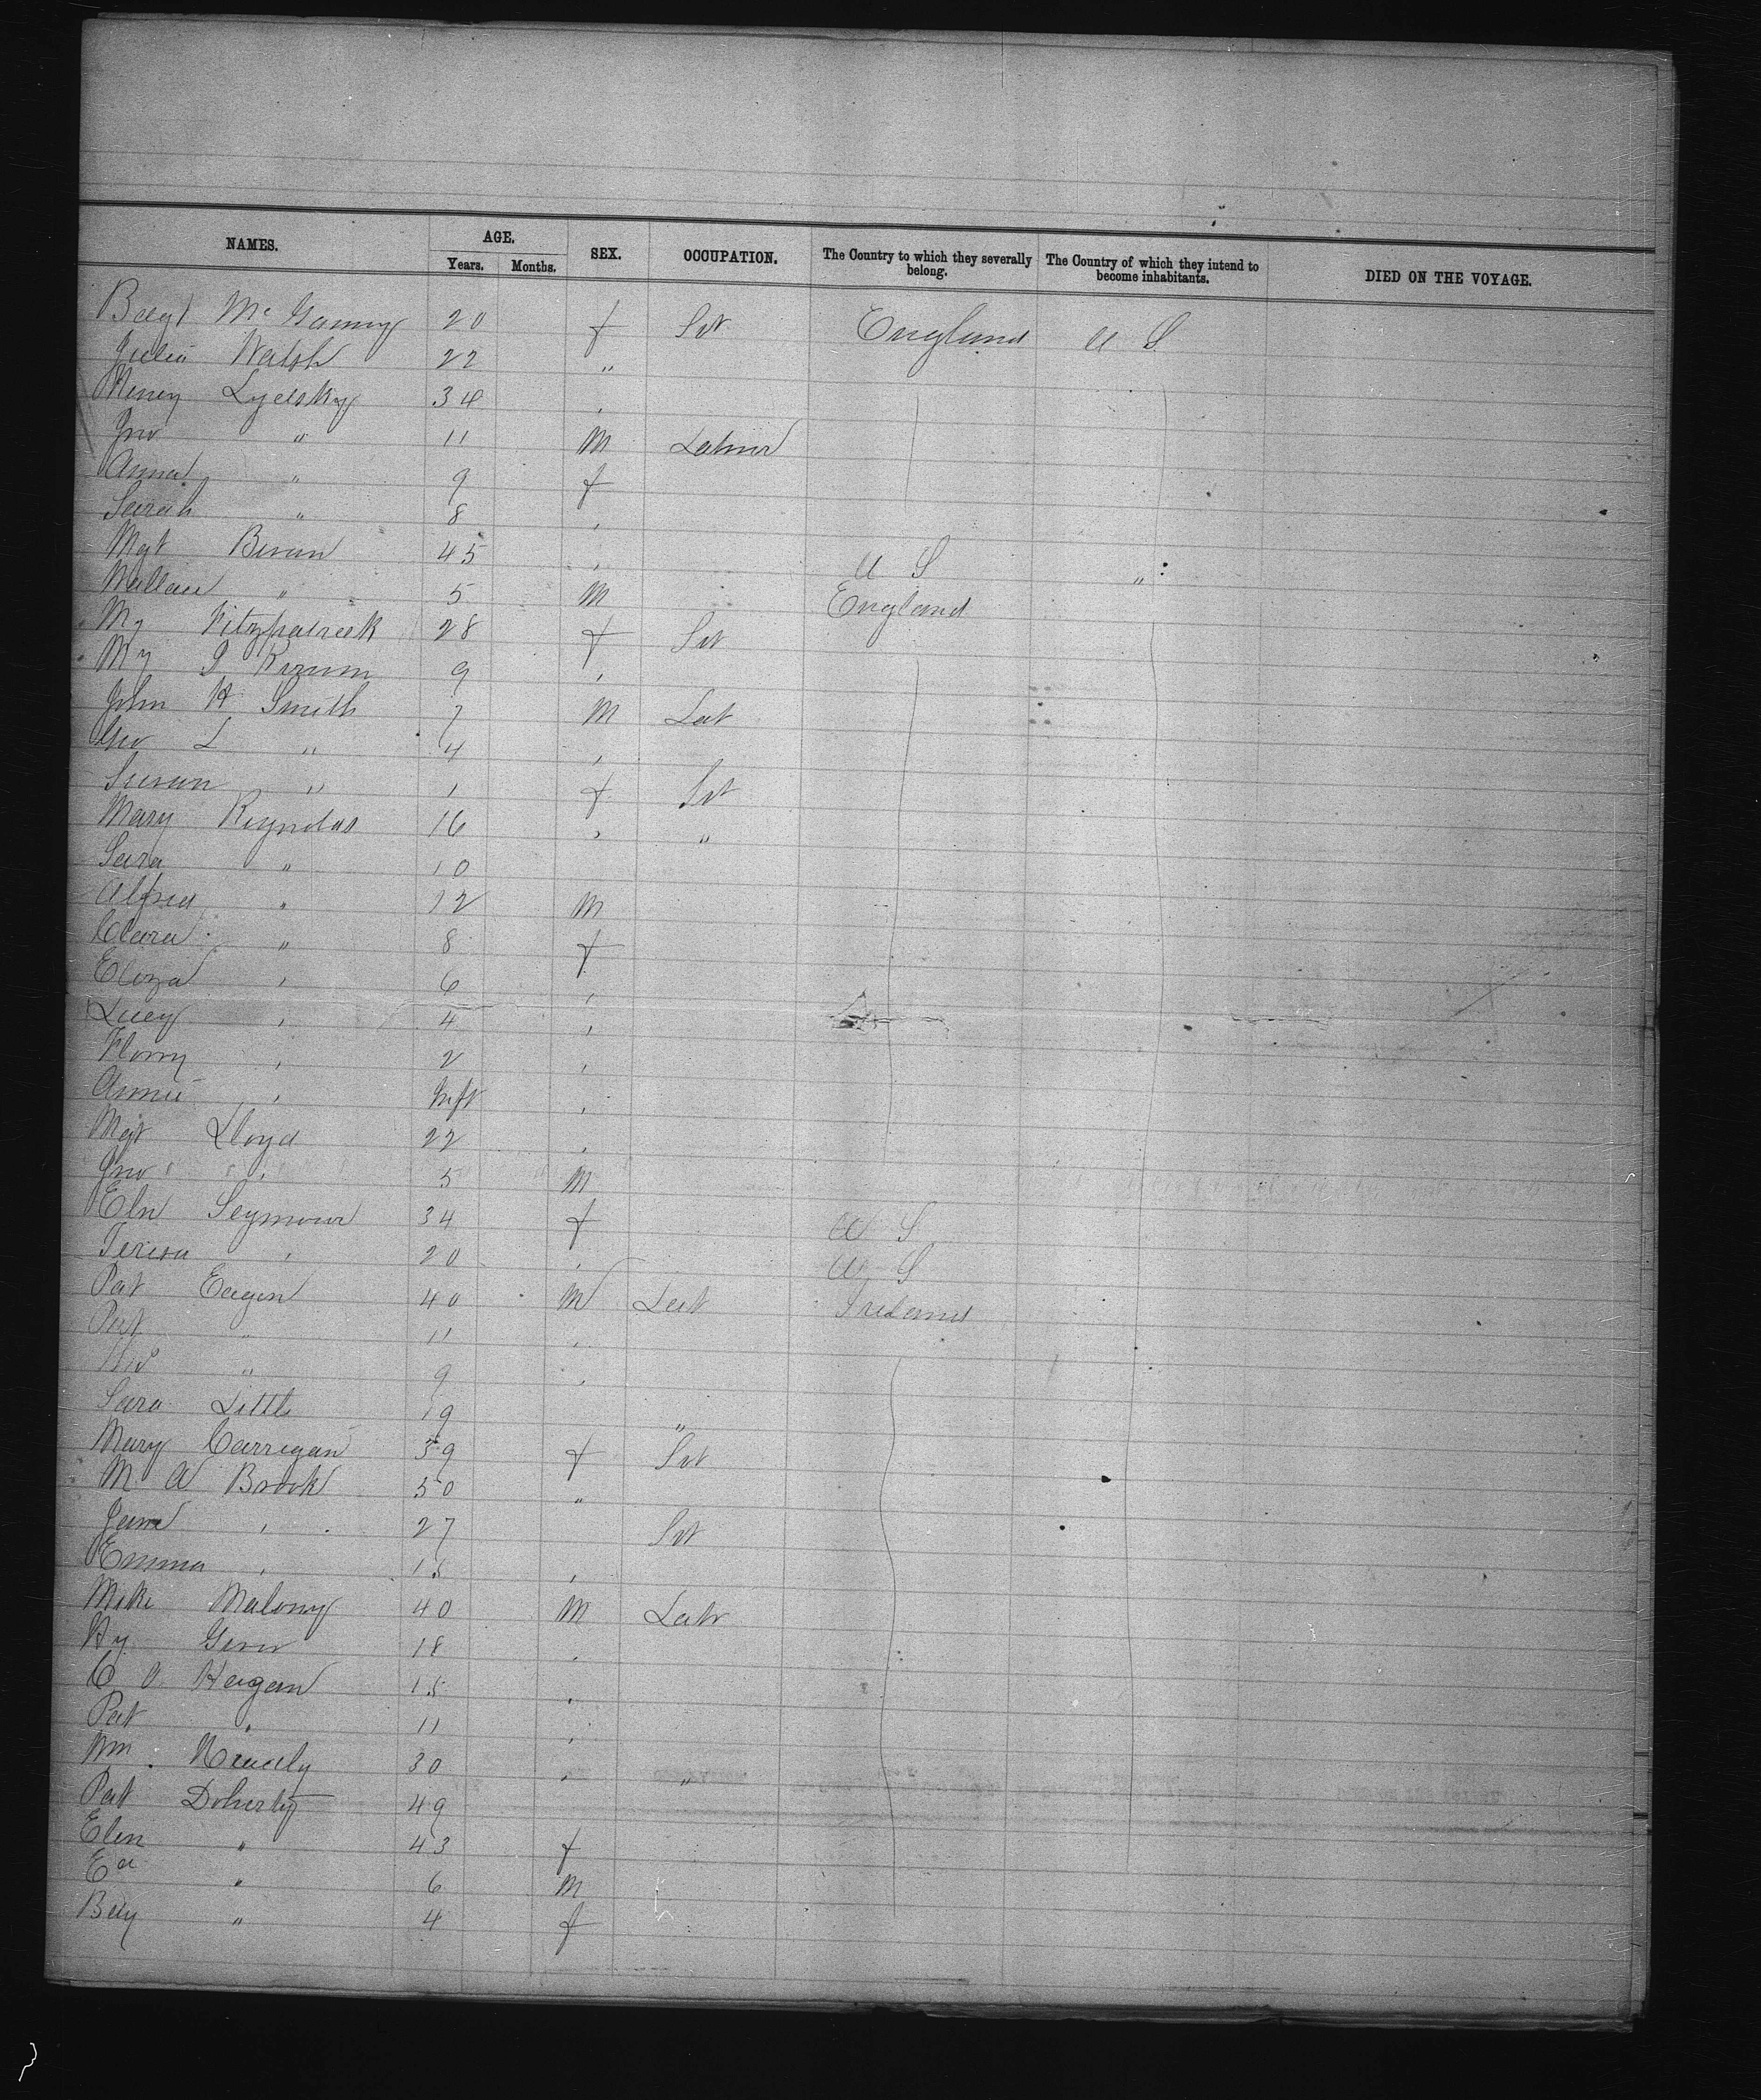 NAMES. AGE. SEX. OCCUPATION. The Country to which they severally belong. The Country of which they intend to become inhabitants. DIED ON THE VOYAGE.
Years. Months.
20 f Svt England U S
Julia Walsh 22 "
34 ,
Jno " 11 M Labour
Anna " 9 f
Sarah " 8 ,
Mgt Bevan 45 , U S "
Wallace " 5 M England
My Fitzpatrick 28 f Svt
My 9 ,
John H Smith 7 M Lab
Geo L " 4 ,
Susan " 1 f Svt
Mary Reynolds 16 , "
Sara " 10
Alfred " 12 M
Clara " 8 f
Eliza , 6 ,
Lucy , 4 ,
Florry , 2 ,
Annie , Inft ,
Mgt Lloyd 22 ,
Jno , 5 M
Eln Seymour 34 f U S
Teresa , 20 , U S
Pat Eagen 40 M Lab Ireland
Pat " 11 "
" 9 ,
Sara Little 19 "
Mary Carrigan 39 f Svt
M A Brook 50 "
Jane , 27 Svt
Emma , 15 ,
Mike Malony 40 M Labr
Hy 18 ,
C O Hagan 15 ,
Pat " 11 ,
Wm 30 , "
Pat Doherty 49
Elen " 43 f
Ed " 6 M
" 4 f